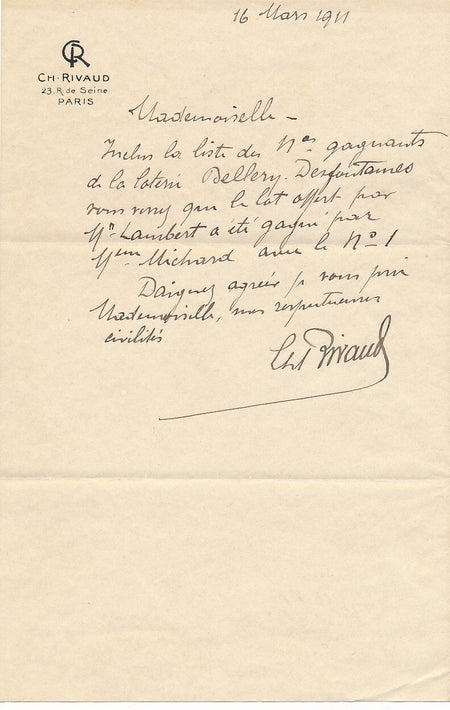 16 Mars 1911
CR
CH. RIVAUD
23. R. de Seine
PARIS
Mademoiselle —
Inclus la liste des Nos gagnants
de la loterie Bellery. Desfontaines
vous verrez que le lot offert par
Mr Lambert a été gagné par
Mme Michard avec le No 1
Daignez agréer je vous prie
Mademoiselle, mes respectueuses
civilités
Ch Rivaud